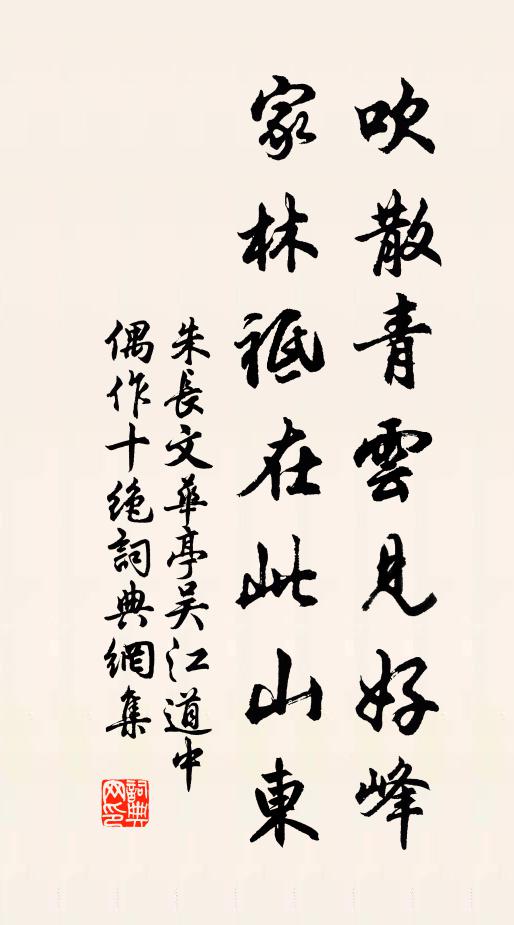 吹散青雲見好峰
家林祗在此山東
朱長文華亭吳江道中
偶作十絕詞典網集
詞典网印